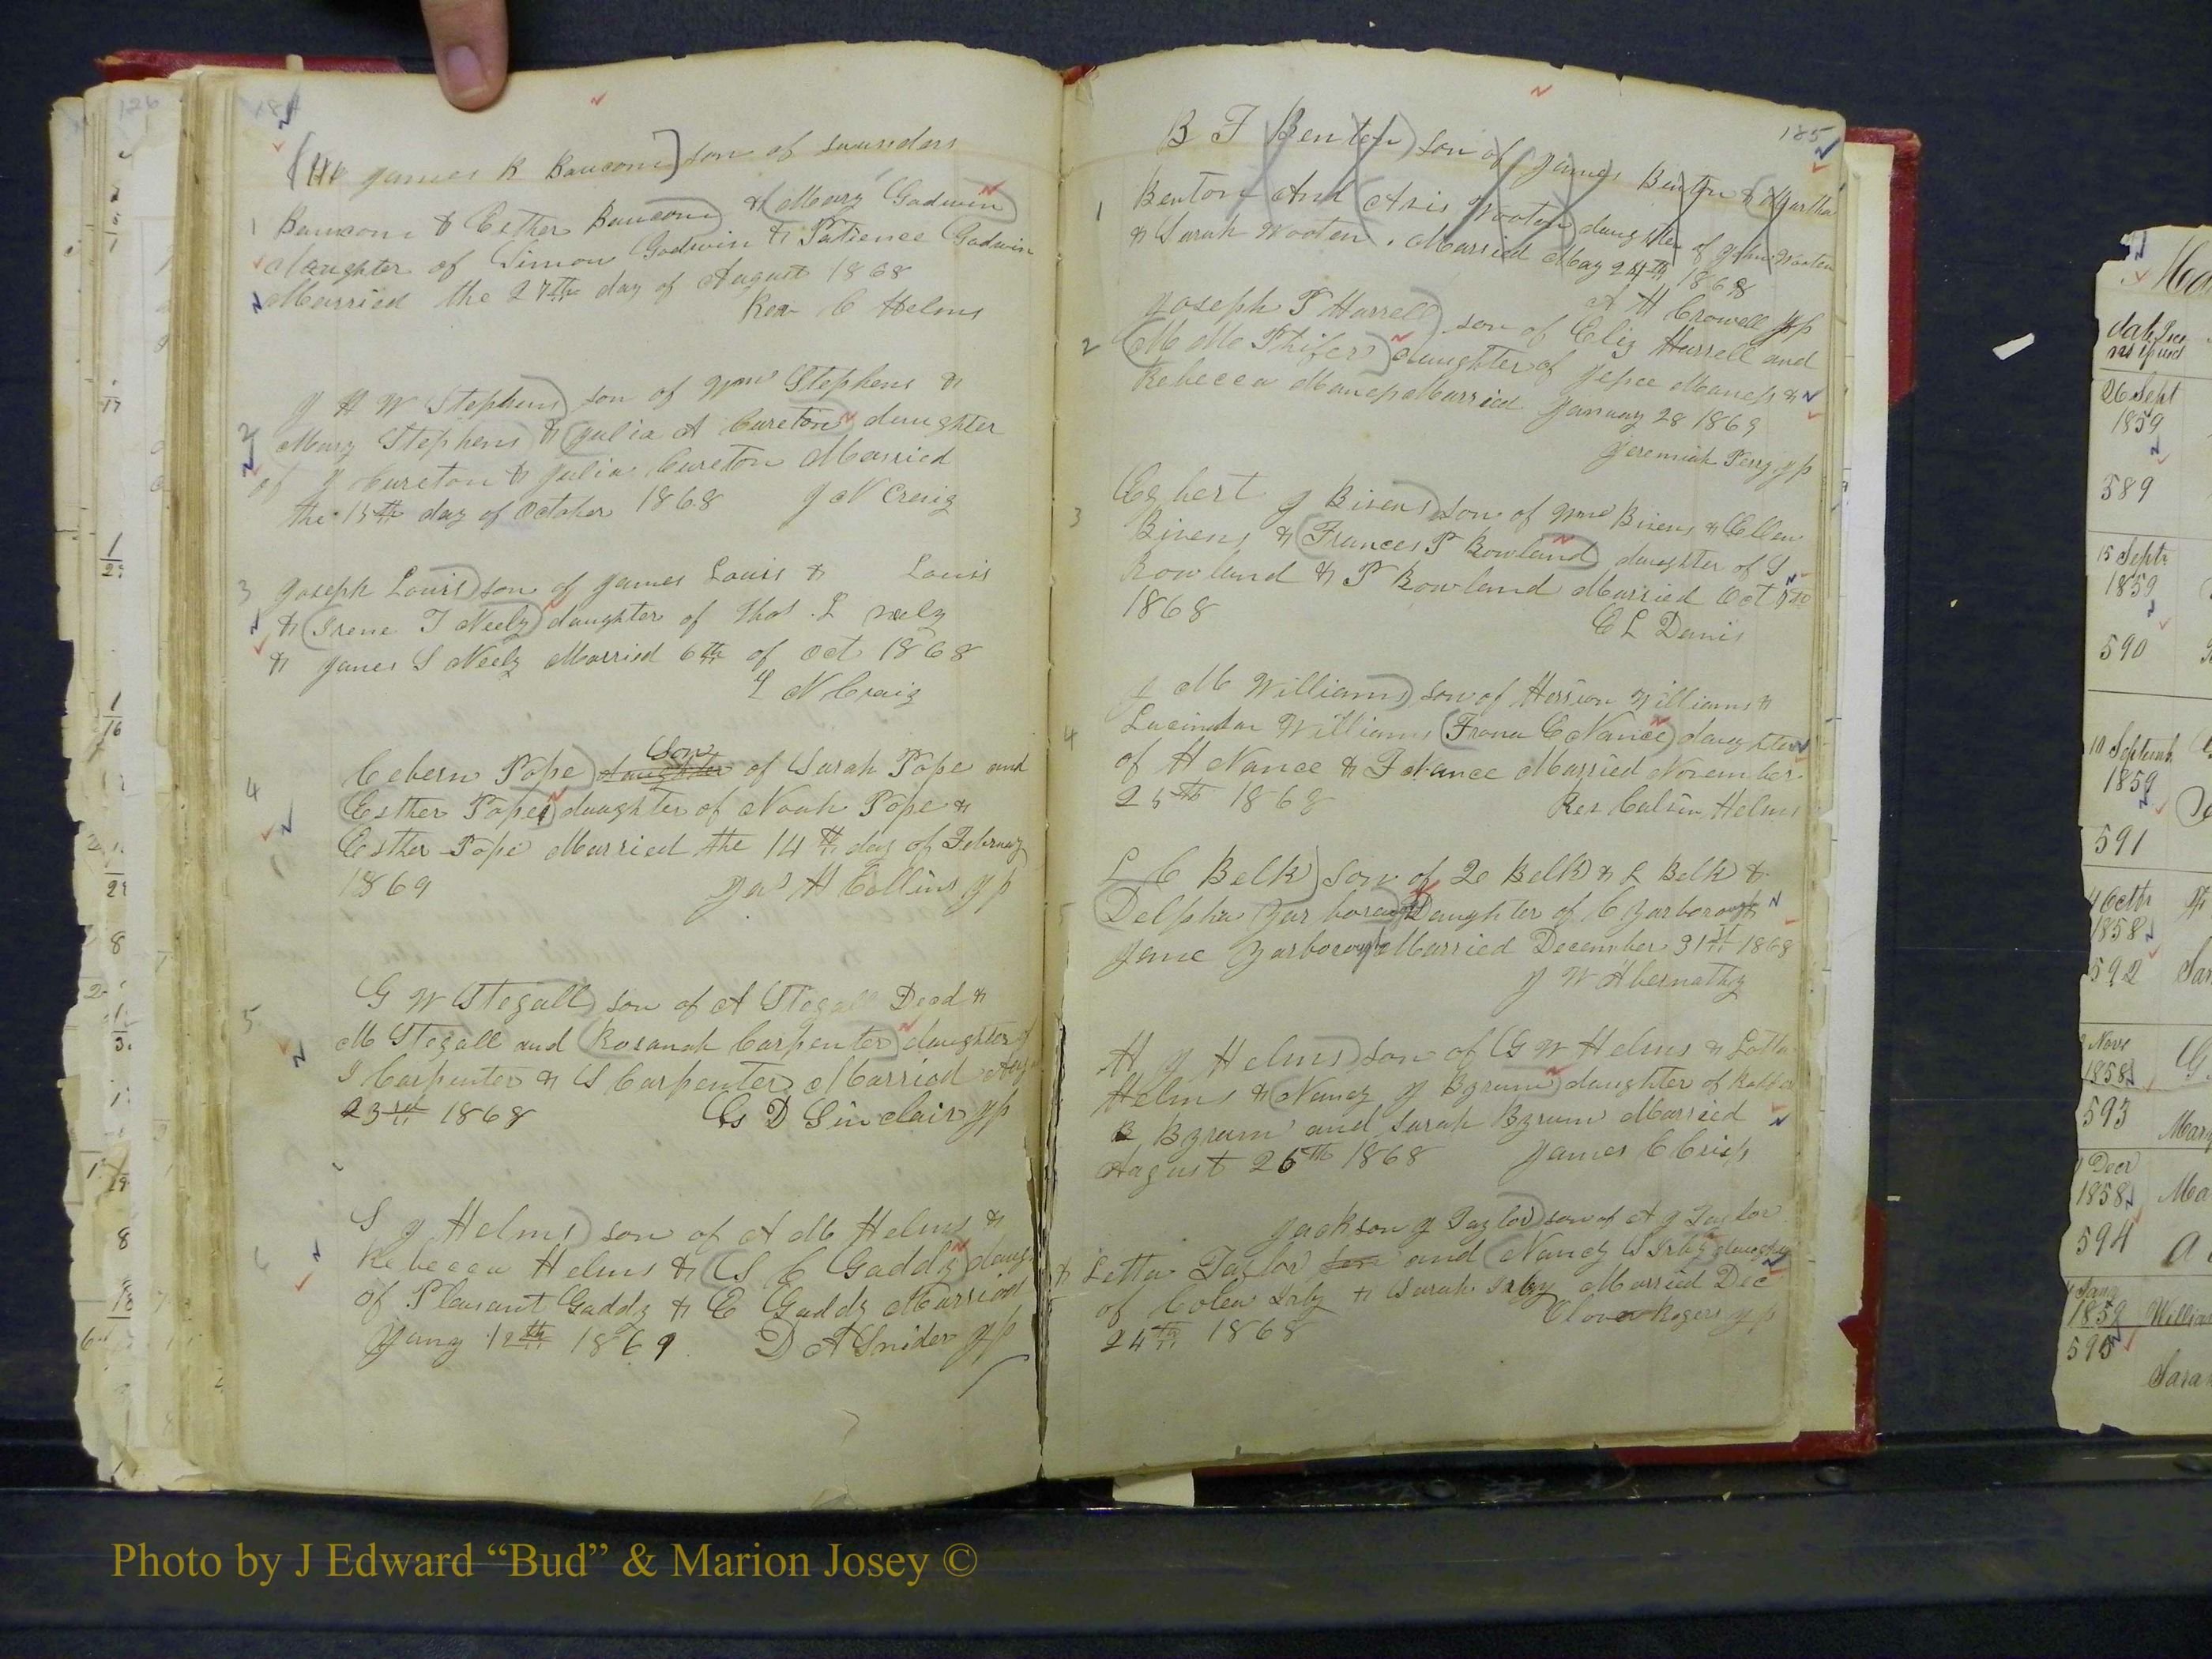 184
James R Baucom) son of Saunders
1 Baucom & Esther Baucom & (Mary Godwin)
daughter of Simon Godwin & Patience Godwin
Married the 27th day of August 1868
Rev C Helms
J H W Stephens) son of Wm Stephens &
2 Mary Stephens & (Julia A Cureton) daughter
of J Cureton & Julia Cureton Married
the 15th day of October 1868 J N Craig
3 Joseph Louis) son of James Louis & Louis
& (Irene T Neely) daughter of Thos. L Neely
& Janes S Neely Married 6th of Oct 1868
J N Craig
Son
4 Cebern Pope) daughter of Sarah Pope and
Esther Pope) daughter of Noah Pope &
Esther Pope Married the 14th day of Februay
1869 Jas H Collins JP
G W Stegall) son of A Stegall Dead &
5 M Stegall and (Rosanah Carpenter) daughter of
J Carpenter & S Carpenter Married Aug
23rd 1868 G D Sinclair JP
S J Helms) son of A M Helms &
6 Rebecca Helms & (S C Gaddy) daug
of Pleasant Gaddy & E Gaddy Married
Jany 12th 1869 D A Snider JP
185
B F Benton) son of James Benton & Martha
1 Benton And (Aris Wooten) daughter of John Wooten
& Sarah Wooten. Married May 24th 1868
A H Crowell JP
Joseph P Harrell) son of Eliz Harrell and
2 (M M Phifer) daughter of Jessee Maness &
Rebecca Maness Married January 28 1869
Jeremiah Perry JP
Egbert J Bivens) son of Wm Bivens & Ellen
3 Bivens & (Frances P Rowland) daughter of S
Rowland & P Rowland Married Oct
1868 E L Davis
J M Williams) son of Williams &
4 Williams (Frona E Nance) daughter
of H Nance & F Nance Married November
25th 1868 Rev Calvin Helms
L C Belk) son of Belk & L Belk &
5 (Delpha Yarborough) Daughter of C Yarborough &
Jane Yarborough Married December 31st 1868
J W Abernathy
H J Helms) son of G W Helms & Lotta
Helms & (Nancy J Byrum) daughter of
B Byrum and Sarah Byrum Married
August 26th 1868 James C
Jackson J Taylor) son of A J Taylor
& Letta Taylor Son and (Nancy S Irby daughter
of Colen Irby & Sarah Irby Married Dec
24th 1868 Rogers JP
26 Sept
1859
589
15 Septr
1859
590
10 Septemb
1859
591
4 Octr
1858
592
Nove
1858
593 Mary
Decr
1858 Ma
594 A
Jany
1859 William
595
Sara
Photo by J Edward “Bud” & Marion Josey ©